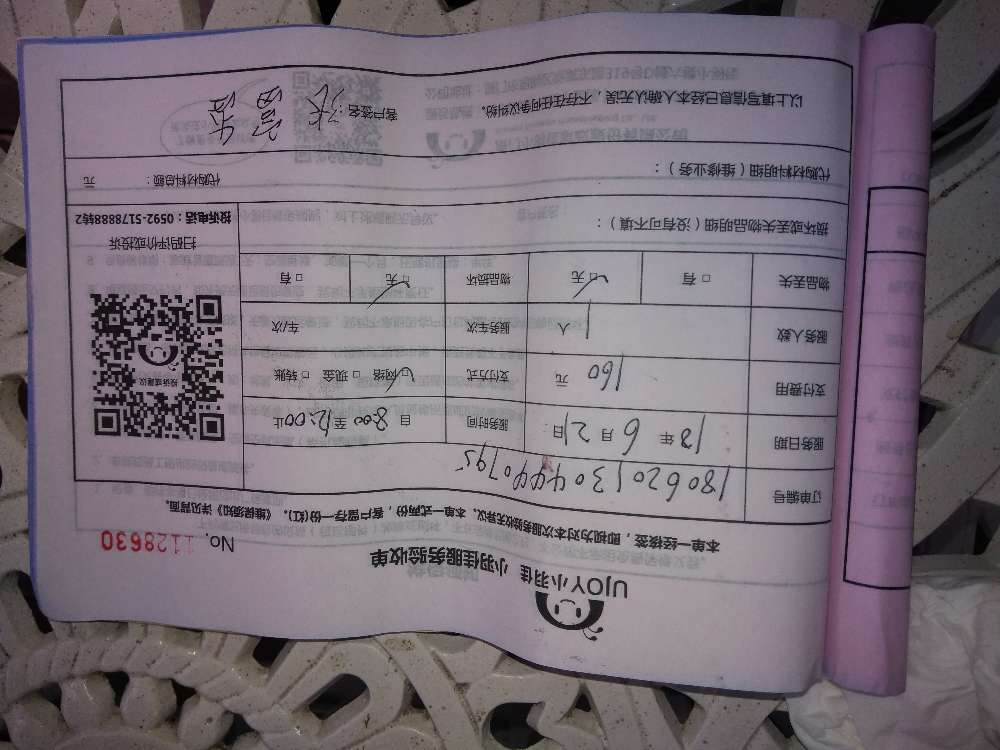 UJOY小羽佳 小羽佳服务验收单
No. 1128630
本单一经接签,即视为对本次服务验收无异议。本单一式两份,客户留存一份(红)。《维保须知》详见背面。
订单编号 18062013044440795
服务日期 18年6月21日 服务时间 自8:00至12:00止
支付费用 160元 支付方式 ☑网络 □现金 □转账
服务人数 1人 服务车次 车/次
物品丢失 □有 ☑无 物品损坏 ☑无 □有
损坏或丢失物品明细(没有可不填):
扫码评价或投诉
投诉电话:0592-5178888转2
投诉或建议
代购材料明细(维修业务): 代购材料总额: 元
以上填写信息已经本人确认无误,不存在任何争议纠纷。 客户签名:张